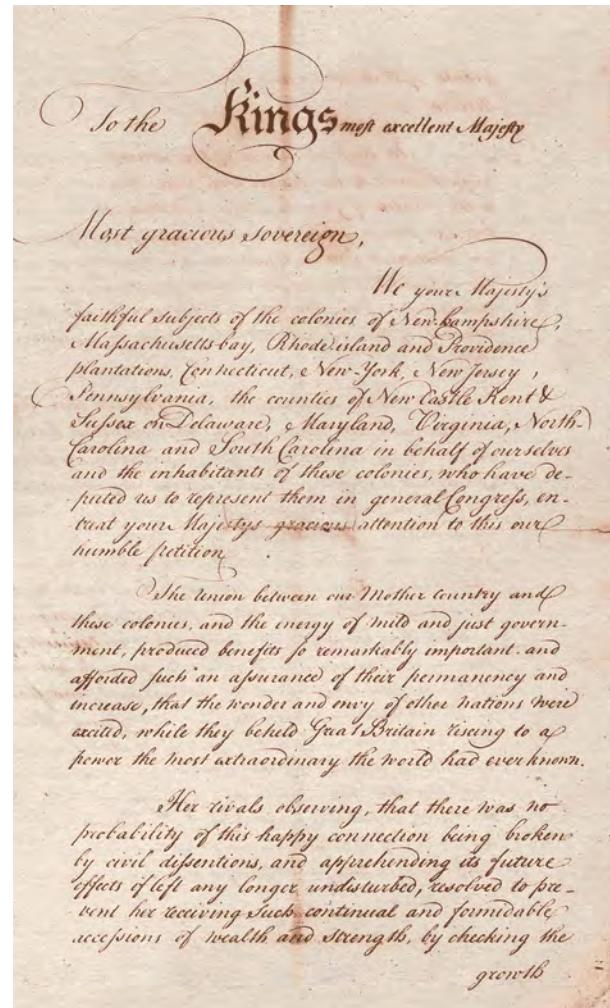 To the Kings most excellent Majesty
Most gracious sovereign,
We your Majesty's
faithful subjects of the colonies of New-hampshire,
Massachusetts-bay, Rhode-island and Providence
plantations, Connecticut, New-York, New Jersey,
Pennsylvania, the counties of New Castle Kent &
Sussex on Delaware, Maryland, Virginia, North-
Carolina and South Carolina in behalf of ourselves
and the inhabitants of these colonies, who have de-
puted us to represent them in general Congress, en-
treat your Majestys gracious attention to this our
humble petition
The union between our Mother Country and
these colonies, and the energy of mild and just govern-
ment, produced benefits so remarkably important and
afforded such an assurance of their permanency and
increase, that the wonder and envy of other nations were
excited, while they beheld Great Britain riseing to a
power the most extraordinary the world had ever known.
Her rivals observing, that there was no
probability of this happy connection being broken
by civil dissentions, and apprehending its future
effects if left any longer undisturbed, resolved to pre-
vent her receiving such continual and formidable
accessions of wealth and strength, by checking the
growth